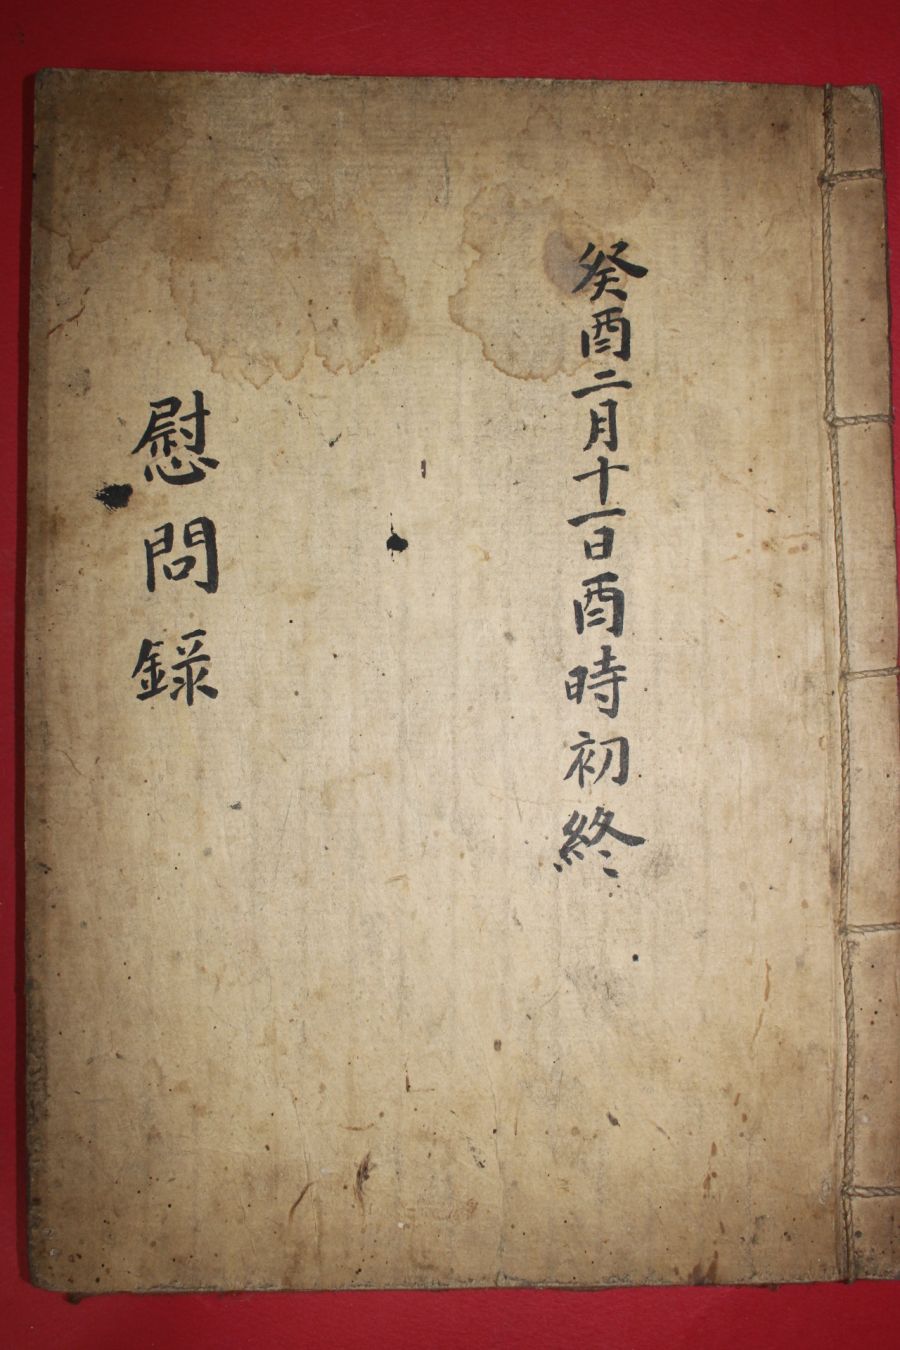 癸酉二月十一日酉時初終
慰問錄